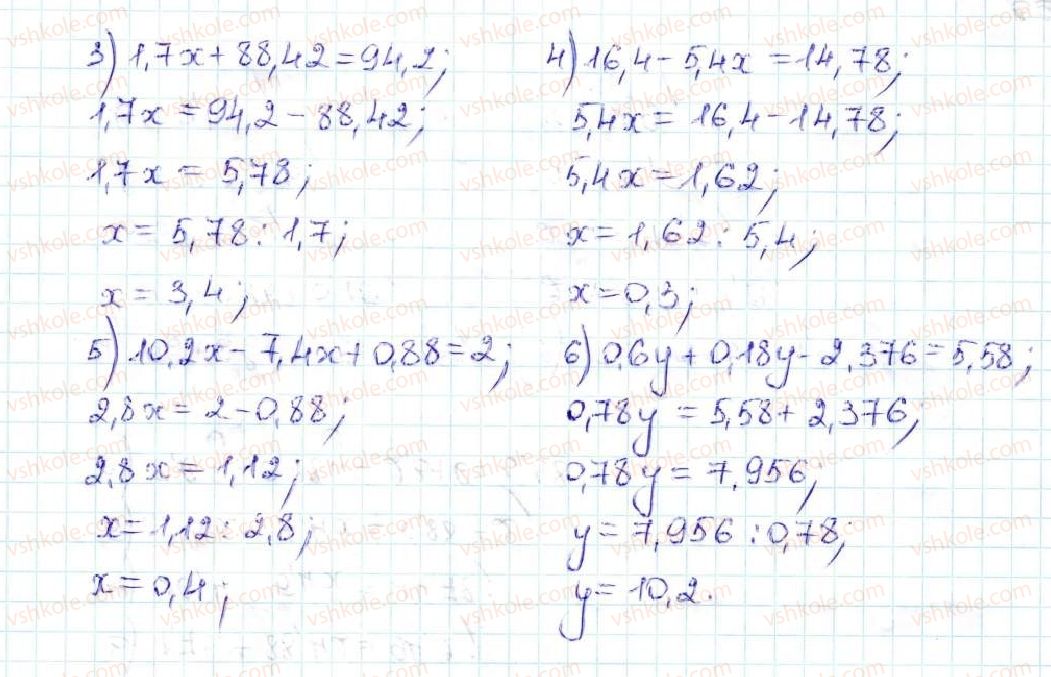 3) 1,7x + 88,42 = 94,2;
1,7x = 94,2 - 88,42;
1,7x = 5,78;
x = 5,78 : 1,7;
x = 3,4;
4) 16,4 - 5,4x = 14,78;
5,4x = 16,4 - 14,78;
5,4x = 1,62;
x = 1,62 : 5,4;
x = 0,3;
5) 10,2x - 7,4x + 0,88 = 2;
2,8x = 2 - 0,88;
2,8x = 1,12;
x = 1,12 : 2,8;
x = 0,4;
6) 0,6y + 0,18y - 2,376 = 5,58;
0,78y = 5,58 + 2,376;
0,78y = 7,956;
y = 7,956 : 0,78;
y = 10,2.
vshkole.com